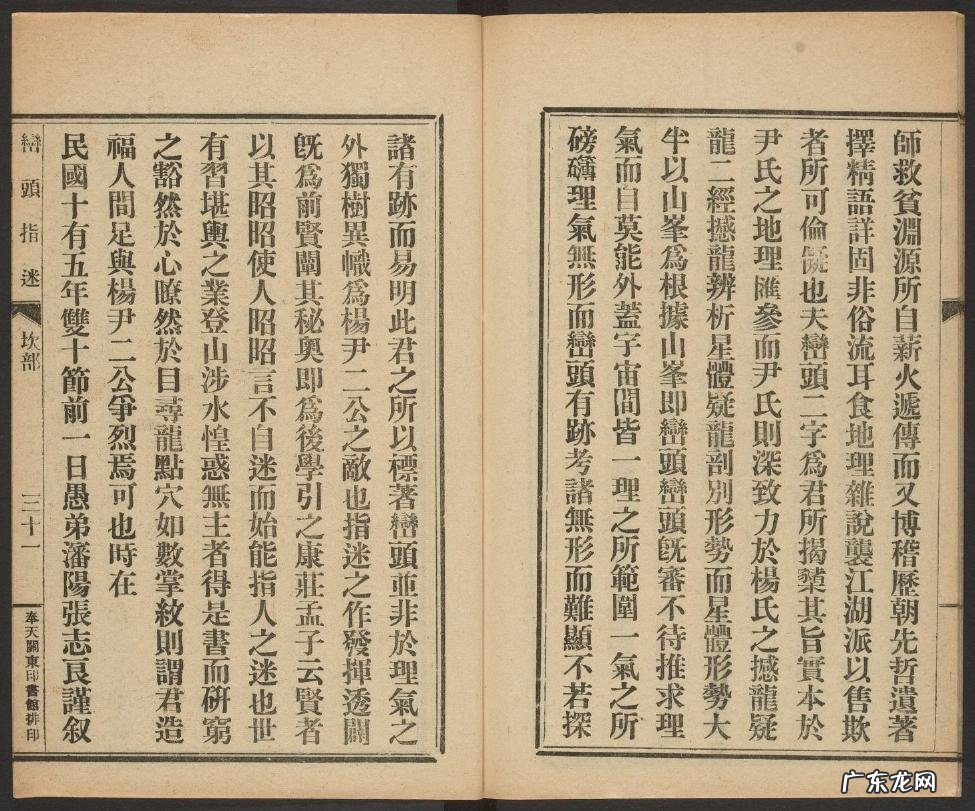 師救貧淵源所自薪火遞傳而又博稽歷朝先哲遺著
擇精語詳固非俗流耳食地理雜說襲江湖派以售欺
者所可倫儗也夫巒頭二字爲君所揭櫫其旨實本於
尹氏之地理匯參而尹氏則深致力於楊氏之撼龍疑
龍二經撼龍辨析星體疑龍剖別形勢而星體形勢大
半以山峯爲根據山峯即巒頭巒頭旣審不待推求理
氣而自莫能外蓋宇宙間皆一理之所範圍一氣之所
磅礴理氣無形而巒頭有跡考諸無形而難顯不若探
諸有跡而易明此君之所以標著巒頭並非於理氣之
外獨樹異幟爲楊尹二公之敵也指迷之作發揮透闢
旣爲前賢闡其秘奧即爲後學引之康莊孟子云賢者
以其昭昭使人昭昭言不自迷而始能指人之迷也世
有習堪輿之業登山涉水惶惑無主者得是書而硏窮
之豁然於心暸然於目尋龍點穴如數掌紋則謂君造
福人間足與楊尹二公爭烈焉可也時在
民國十有五年雙十節前一日愚弟瀋陽張志良謹叙
巒頭指迷 坎部 三十一 奉天關東印書館排印
广东龙网